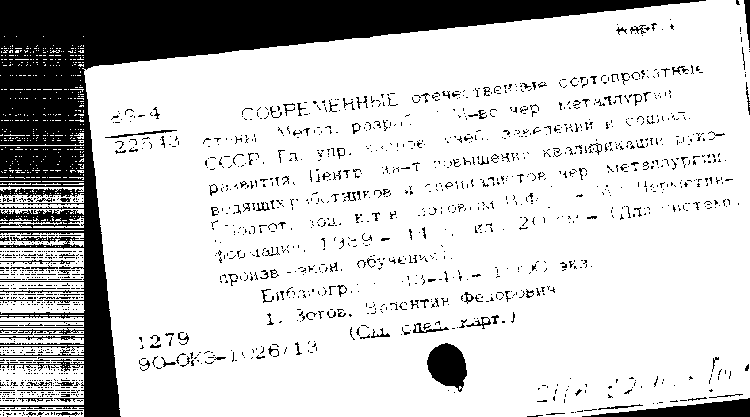 Карт. 1
89-4
СОВРЕМЕННЫЕ отечественные сортопрокатные
станы. Метод. разраб. М-во чер. металлургии
СССР. Гл. упр. учеб. заведений и социал.
развития. Центр. ин-т повышения квалификации руко-
водящих работников и специалистов чер. металлургии
Подгот. доц. к.т.н. Зотовым В.Ф. - М.: Черметин-
формация, 1989 - 44 ил. 20 см - (Для системы
произв.-экон. обучения).
Библиогр.: 43-44. - 1000 экз.
1. Зотов, Валентин Федорович
1279
(См. след. карт.)
90-ОКЭ-1026/13